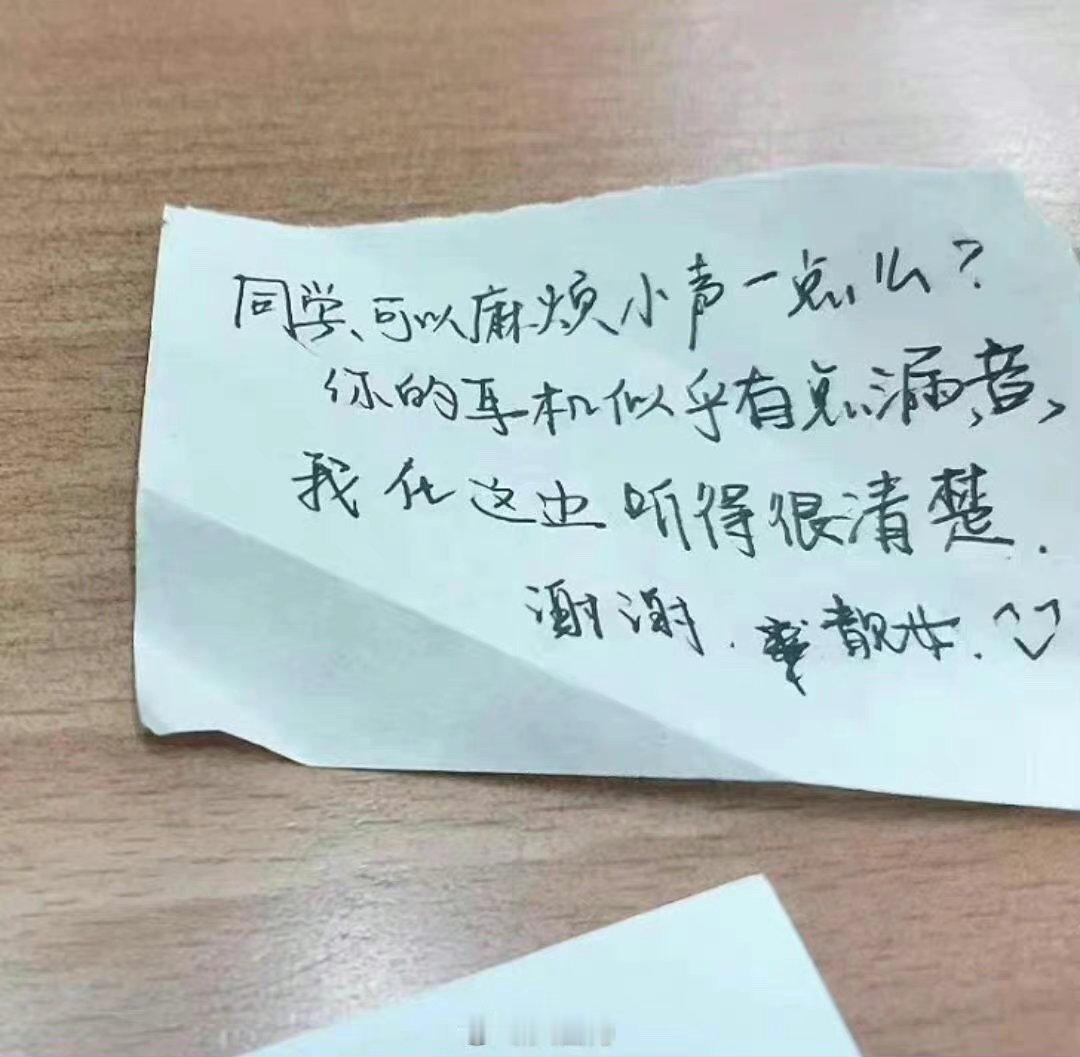 同学、可以麻烦小声一点么？
你的耳机似乎有点漏音，
我在这边听得很清楚.
谢谢. 靓女.